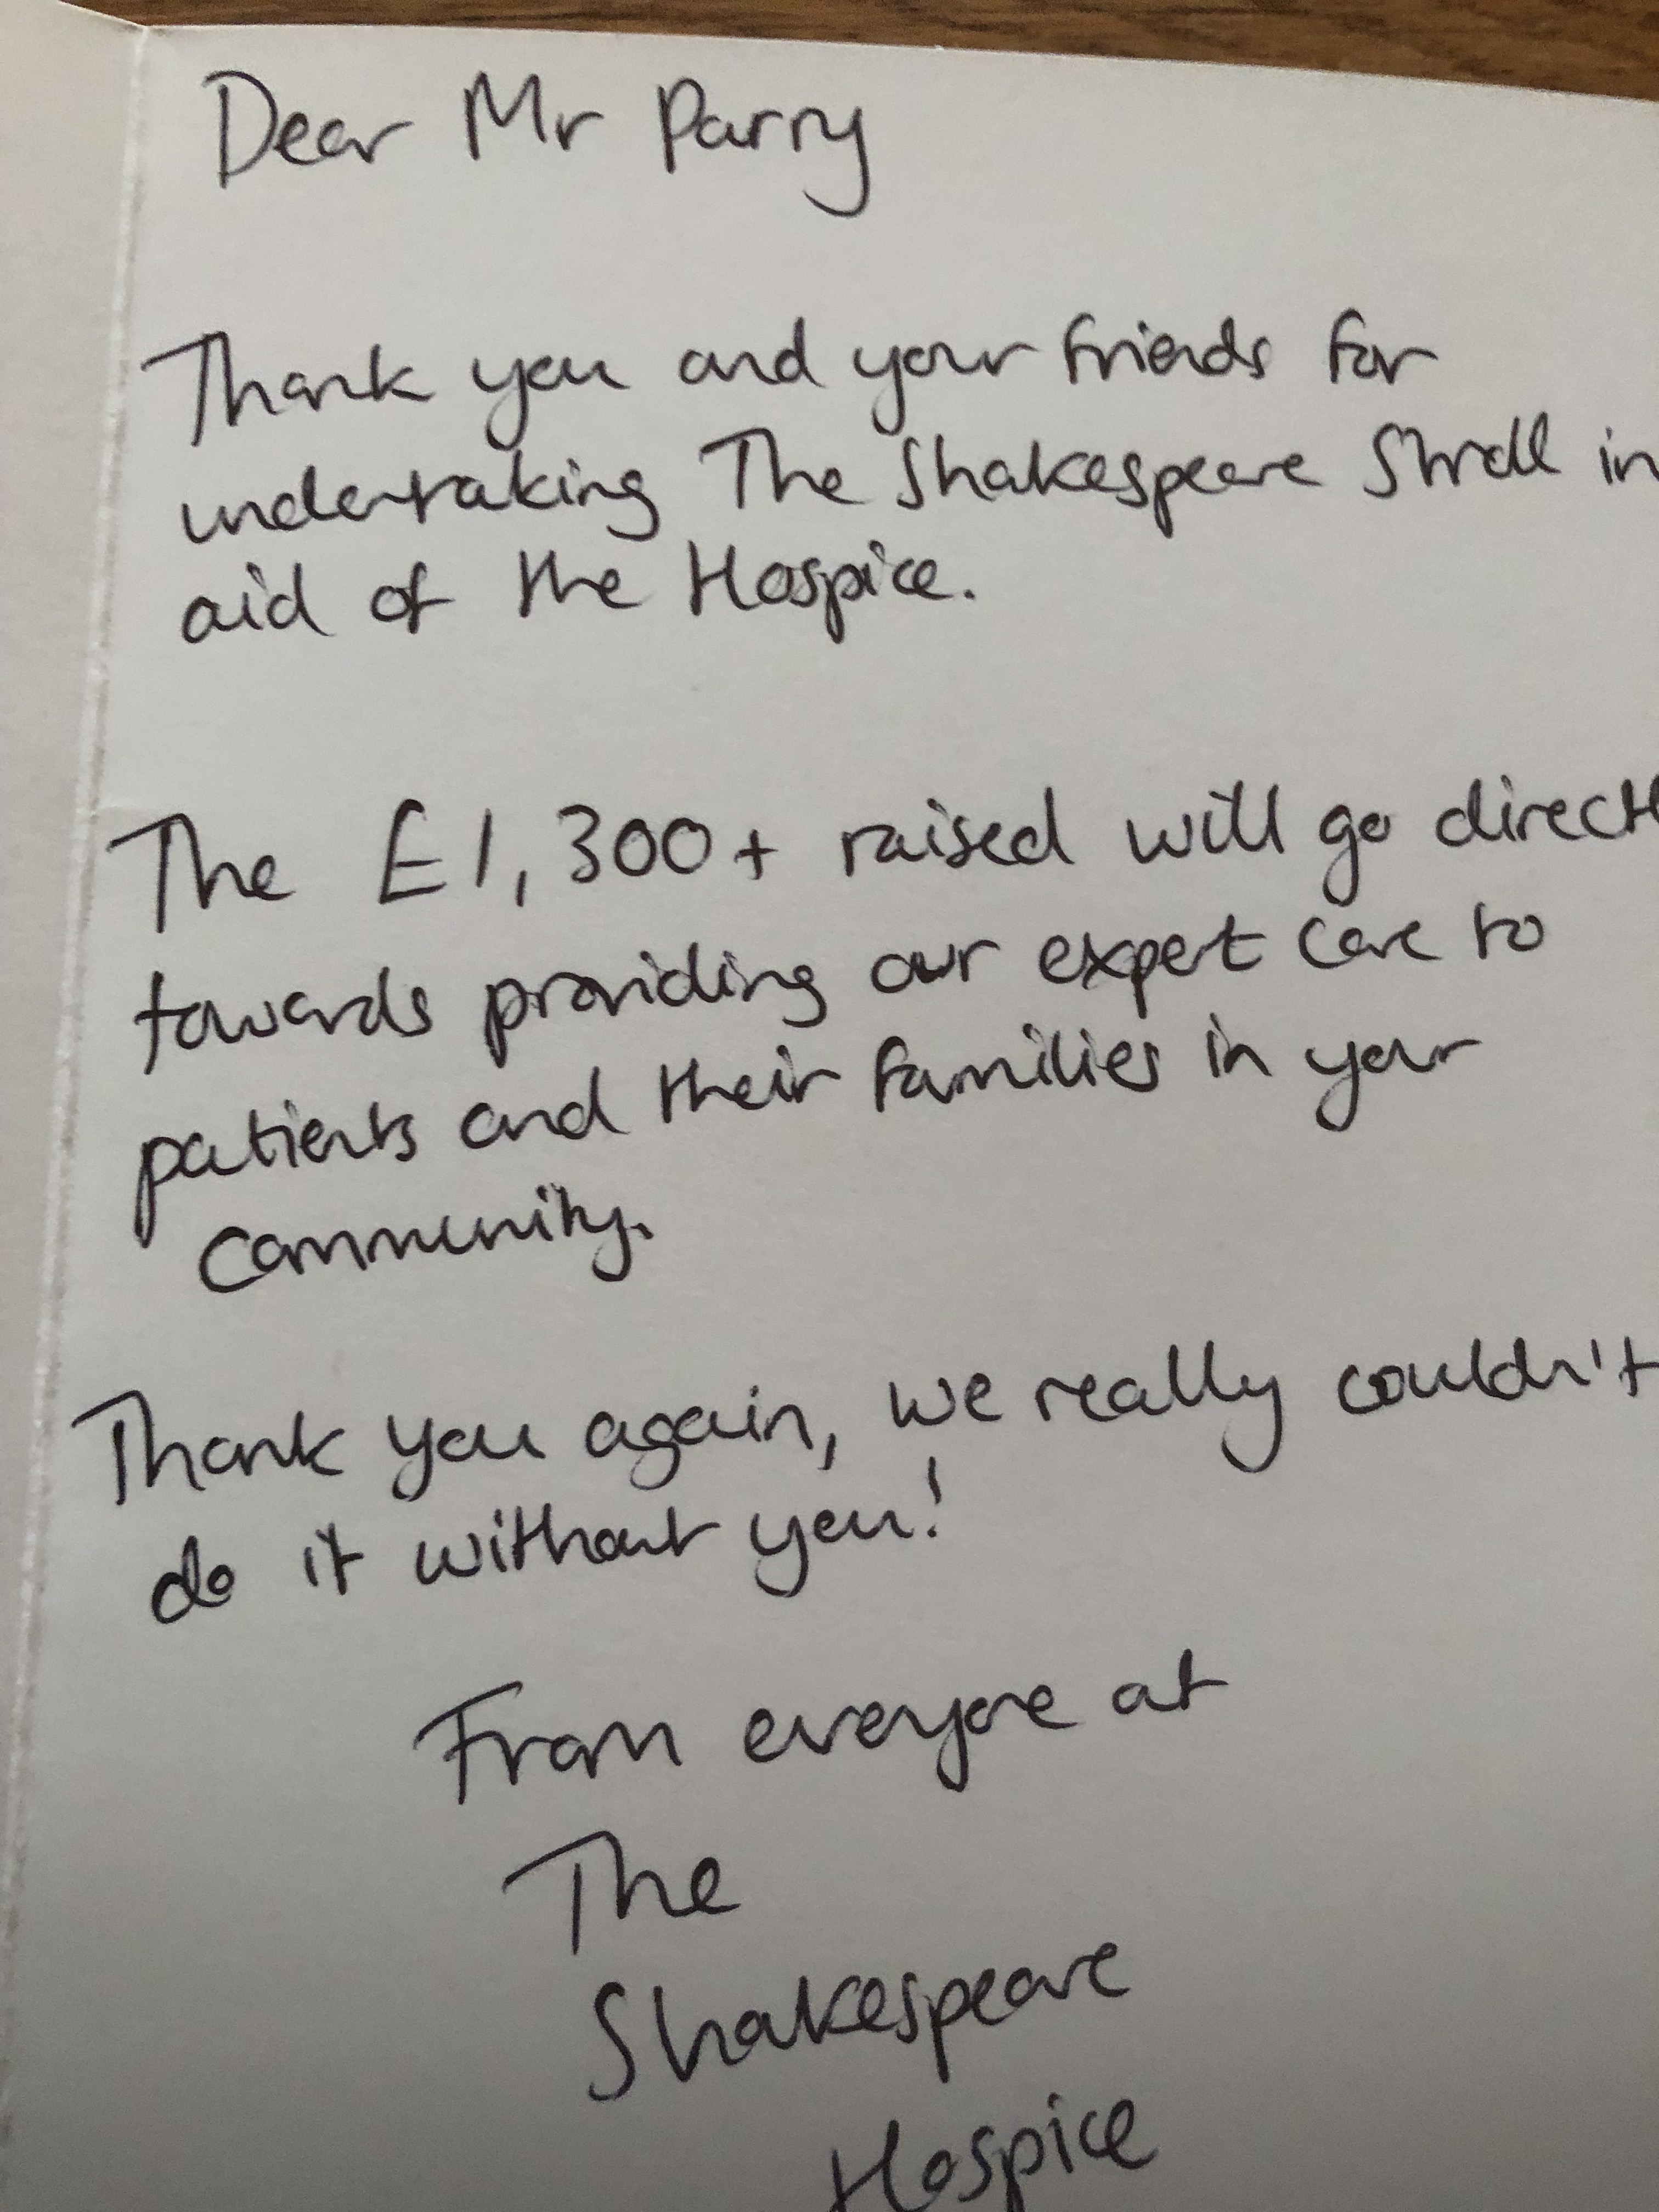 Dear Mr Parry
Thank you and your friends for
undertaking The Shakespeare Stroll in
aid of the Hospice.
The £1,300+ raised will go directl
towards providing our expert care to
patients and their families in your
community.
Thank you again, we really couldn't
do it without you!
From everyone at
The
Shakespeare
Hospice